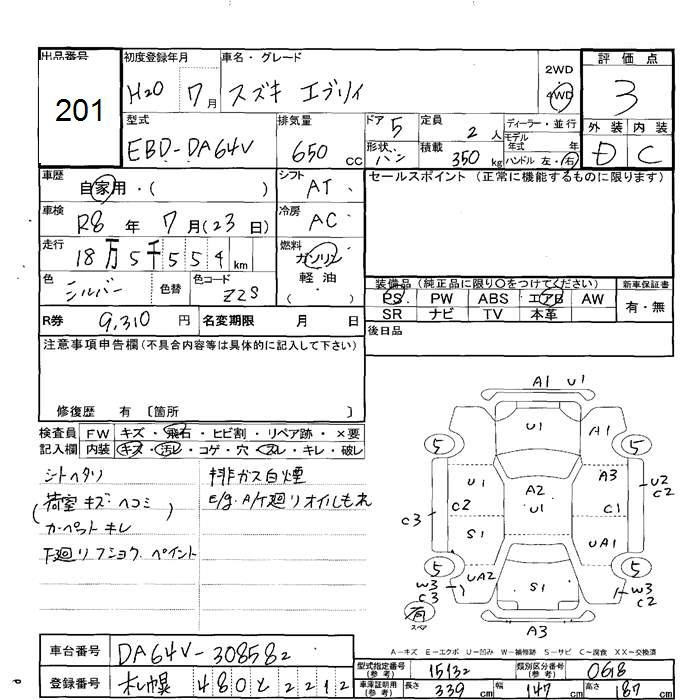 出品番号
201
初度登録年月
H20 7月
車名・グレード
スズキ エブリィ
2WD
4WD
評価点
3
外装 内装
D C
型式
EBD-DA64V
排気量
650 CC
ドア 5
形状 バン
定員 2 人
積載 350 kg
ディーラー・並行
モデル年式 年
ハンドル 左・右
車歴
自家用・( )
シフト
AT
セールスポイント (正常に機能するものに限ります)
車検
R8 年 7 月(23 日)
冷房
AC
走行
18万5千554 km
燃料
ガソリン
軽油
( ・ )
色
シルバー
色替
色コード
Z2S
装備品(純正品に限り〇をつけてください)
新車保証書
PS PW ABS エアB AW
有・無
SR ナビ TV 本革
R券 9,310 円
名変期限 月 日
後日品
注意事項申告欄(不具合内容等は具体的に記入して下さい)
修復歴 有 〔箇所 〕
検査員
記入欄
FW キズ・飛石・ヒビ割・リペア跡・×要
内装 キズ・汚レ・コゲ・穴・スレ・キレ・破レ
シートヘタリ
(荷室キズヘコミ)
カーペットキレ
下廻リフショク.ペイント
排ガス白煙
E/g.A/T廻リオイルもれ
A1 U1
U1
A1
5
5
U1
C2
A2
U1
A3
C1
U2
C2
C3
S1
UA1
5
5
UA2
S1
W3
C3
W3
C2
有
スペア
A3
A-キズ E-エクボ U-凹み W-補修跡 S-サビ C-腐食 XX-交換済
車台番号
DA64V-308582
型式指定番号
(参考)
15132
類別区分番号
(参考)
0618
登録番号
札幌 480 と 2212
車庫証明用
(参考)
長さ 339 cm
幅 147 cm
高さ 187 cm